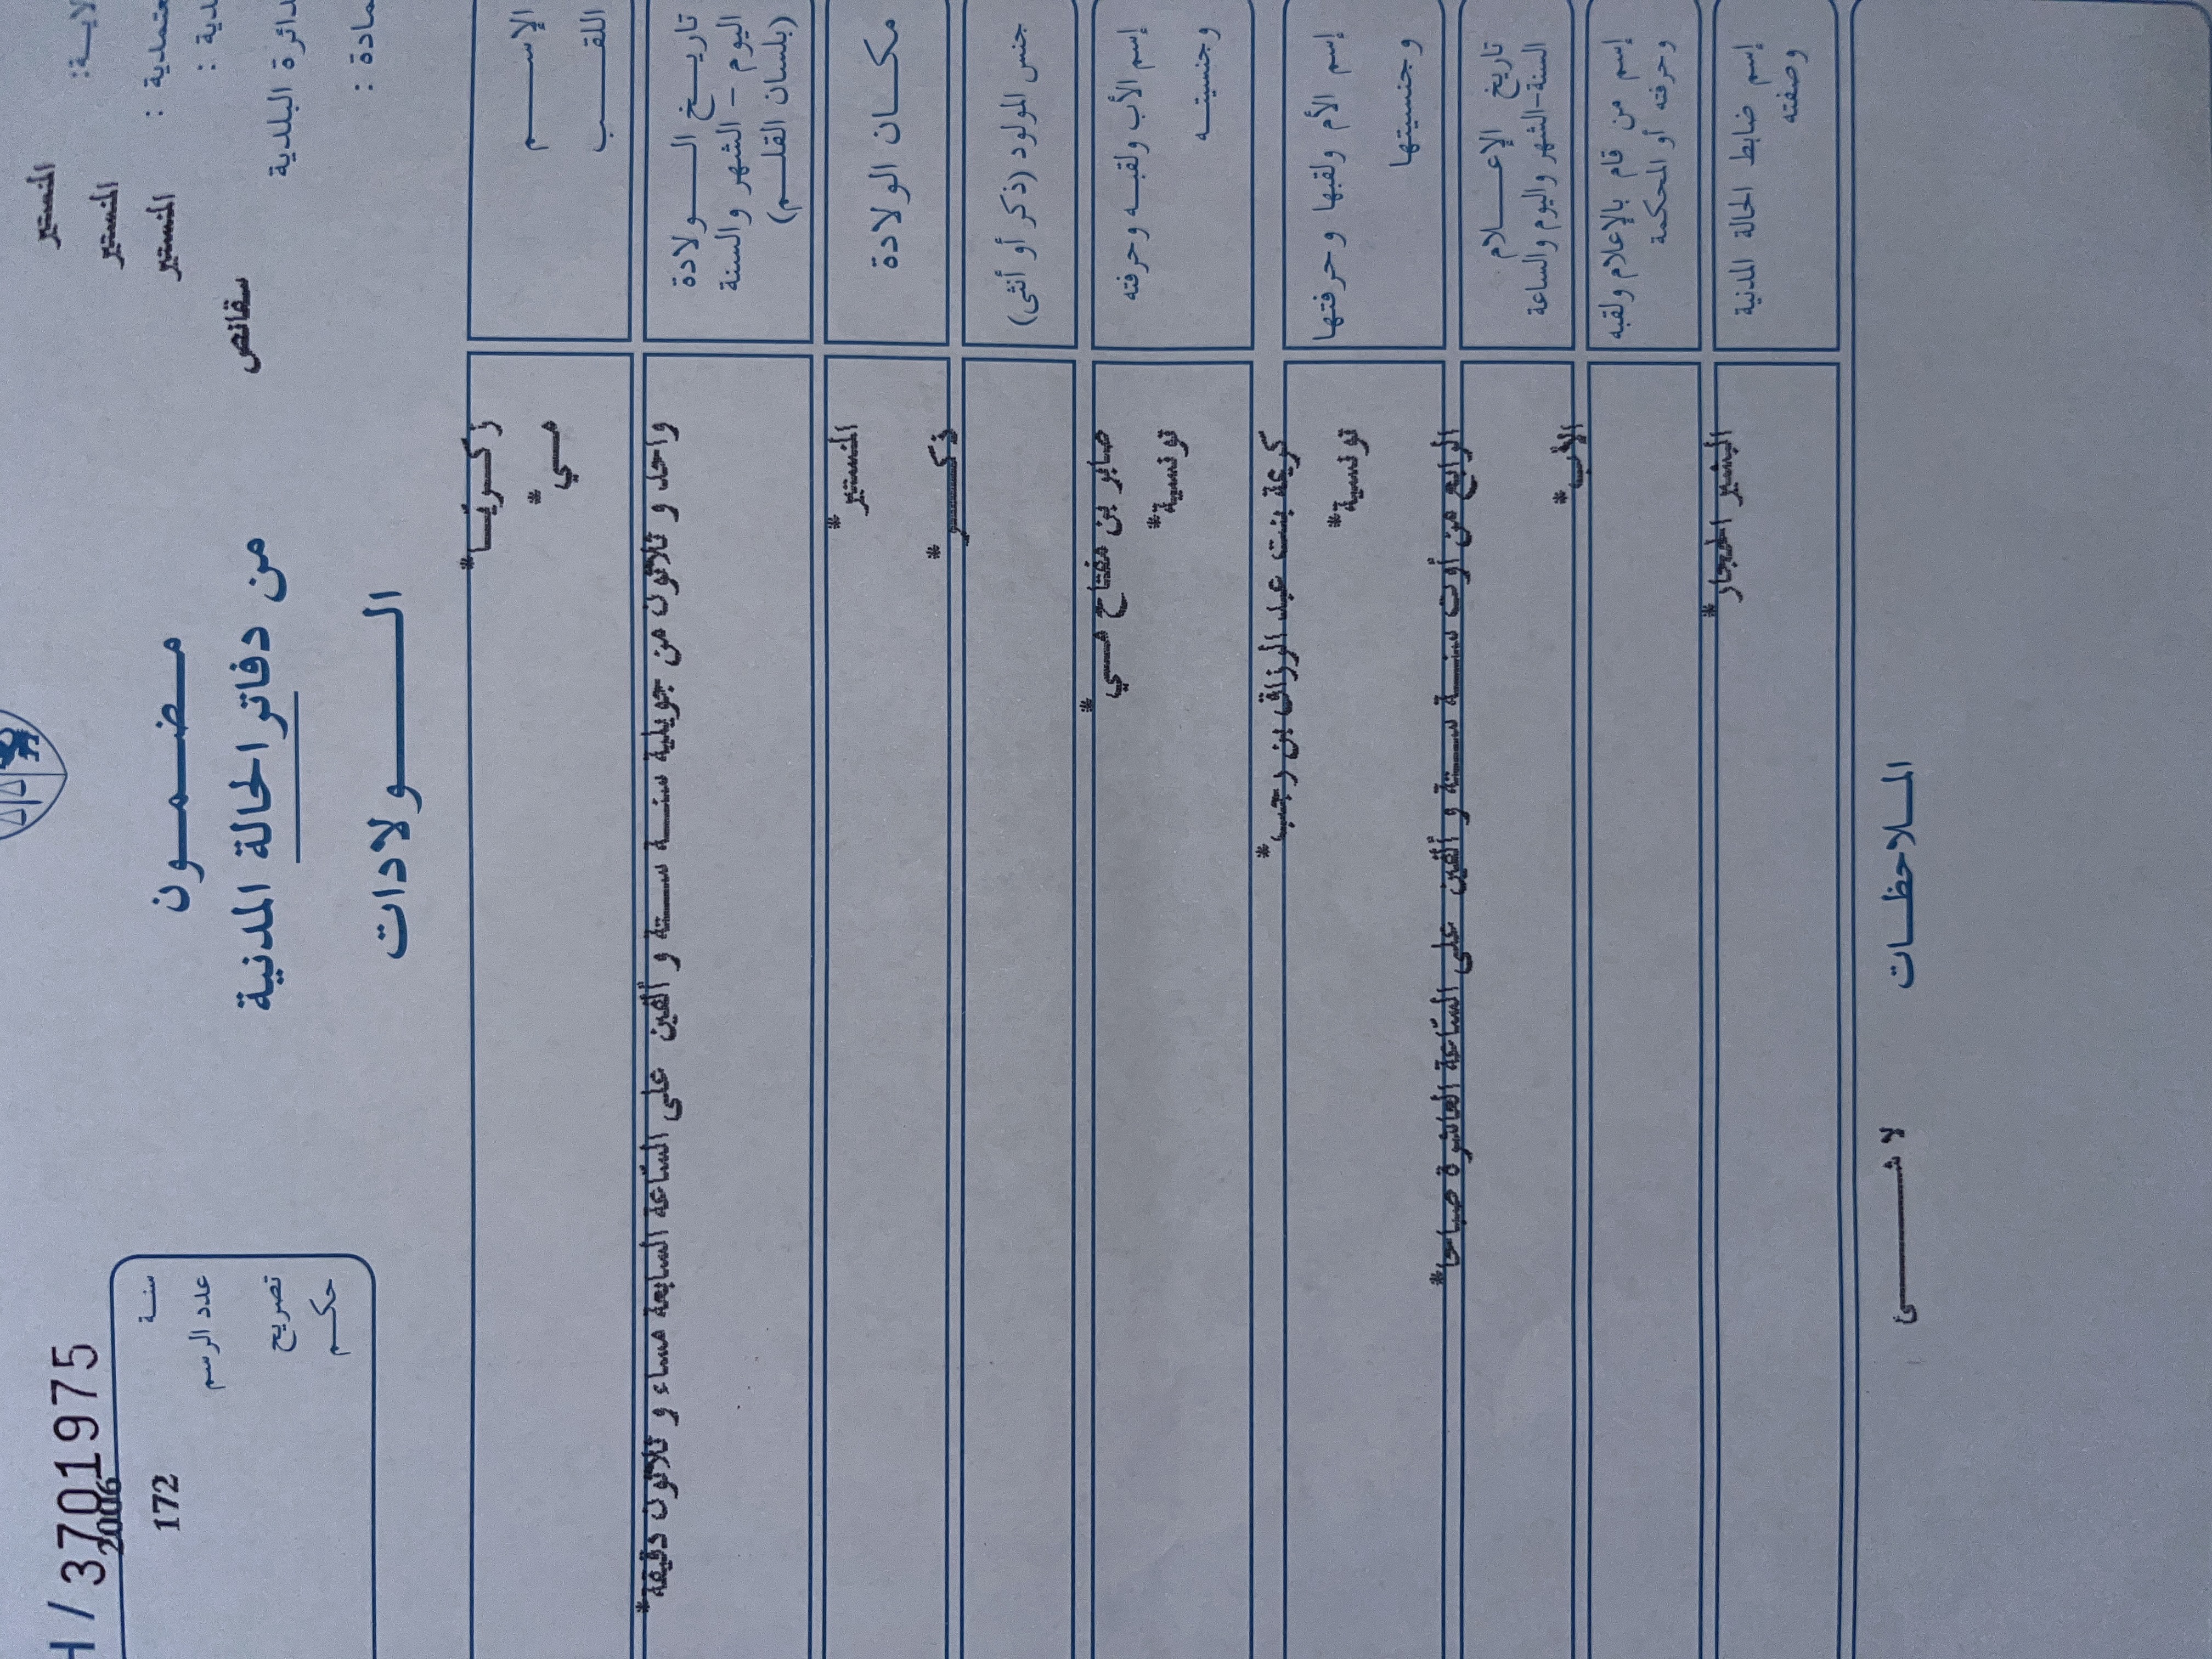 H / 3701975
2006
سنة
172
عدد الرسم
تصريح
حكم
المنستير
المنستير
المنستير
سقانص
دائرة البلدية
مضمون
من دفاتر الحالة المدنية
الولادات
الإسم
زكريا*
اللقب
مي*
تاريخ الولادة
اليوم - الشهر والسنة
(بلسان القلم)
واحد و ثلاثون من جويلية سنة ستة و ألفين على الساعة السابعة مساء و ثلاثون دقيقة*
مكان الولادة
المنستير*
جنس المولود (ذكر أو أنثى)
ذكر*
إسم الأب ولقبه وحرفته
وجنسيته
صابر بن مفتاح مي*
تونسية*
إسم الأم ولقبها وحرفتها
وجنسيتها
كريمة بنت عبد الرزاق بن رجب*
تونسية*
تاريخ الإعلام
السنة-الشهر واليوم والساعة
الرابع من أوت سنة ستة و ألفين على الساعة العاشرة صباحا*
إسم من قام بالإعلام ولقبه
وحرفته أو المحكمة
الأب*
إسم ضابط الحالة المدنية
وصفته
البشير الحجار*
الملاحظات
لا شئ